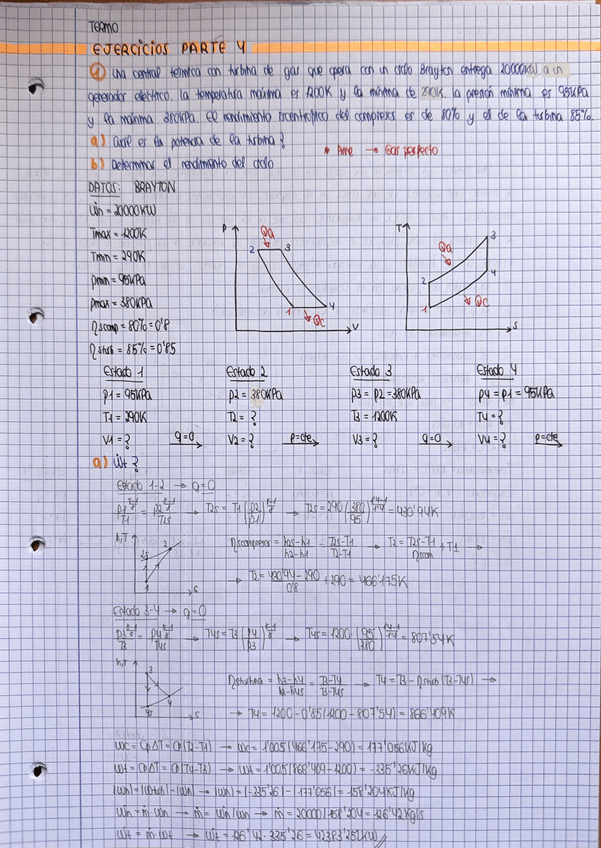 TERMO
EJERCICIOS PARTE 4
1 Una central térmica con turbina de gas que opera con un ciclo Brayton entrega 20000KW a un
generador eléctrico. La temperatura máxima es 1200K y la mínima de 290K. La presión mínima es 95KPa
y la máxima 380KPa. El rendimiento isoentrópico del compresor es de 80% y el de la turbina 85%.
a) Cuál es la potencia de la turbina?
* Aire → Gas perfecto
b) Determinar el rendimiento del ciclo
DATOS: BRAYTON
Ẇn = 20000KW
Tmax = 1200K
Tmin = 290K
pmin = 95KPa
pmax = 380KPa
ηscomp = 80% = 0'8
ηsturb = 85% = 0'85
P Qa 2 3 1 4 Qc V
T Qa 2 3 1 4 Qc S
Estado 1 Estado 2 Estado 3 Estado 4
P1 = 95KPa P2 = 380KPa P3 = P2 = 380KPa P4 = P1 = 95KPa
T1 = 290K T2 = ? T3 = 1200K T4 = ?
V1 = ? q=0 V2 = ? p=cte V3 = ? q=0 V4 = ? p=cte
a) Ẇt ?
Estado 1-2 → q=0
→ T2s = T1 (p2/p1) → T2s = 290 (380/95) = 430'94K
h,T 2s 2 1 S
ηscompresor = h2s-h1/h2-h1 = T2s-T1/T2-T1 → T2 = T2s-T1/ηscom + T1 →
→ T2 = 430'94 - 290/0'8 + 290 = 466'175K
Estado 3-4 → q=0
→ T4s = T3 (p4/p3) → T4s = 1200 · (95/380) = 807'54K
h,T 3 4s 4 S
ηsturbina = h3-h4/h3-h4s = T3-T4/T3-T4s → T4 = T3 - ηsturb (T3-T4s) →
→ T4 = 1200 - 0'85(1200 - 807'54) = 866'409K
Wc = CpΔT = Cp(T2-T1) → Wc = 1'005(466'175-290) = 177'056KJ/Kg
Wt = CpΔT = Cp(T4-T3) → Wt = 1'005(866'409-1200) = -335'26KJ/Kg
→ |Wn| = |-335'26| - |177'056| = 158'204KJ/Kg
Ẇn = ṁ·Wn → ṁ = Ẇn/Wn → ṁ = 20000/158'204 = 126'42Kg/s
Ẇt = ṁ·Wt → Ẇt = 126'42·335'26 = 42383'252KW